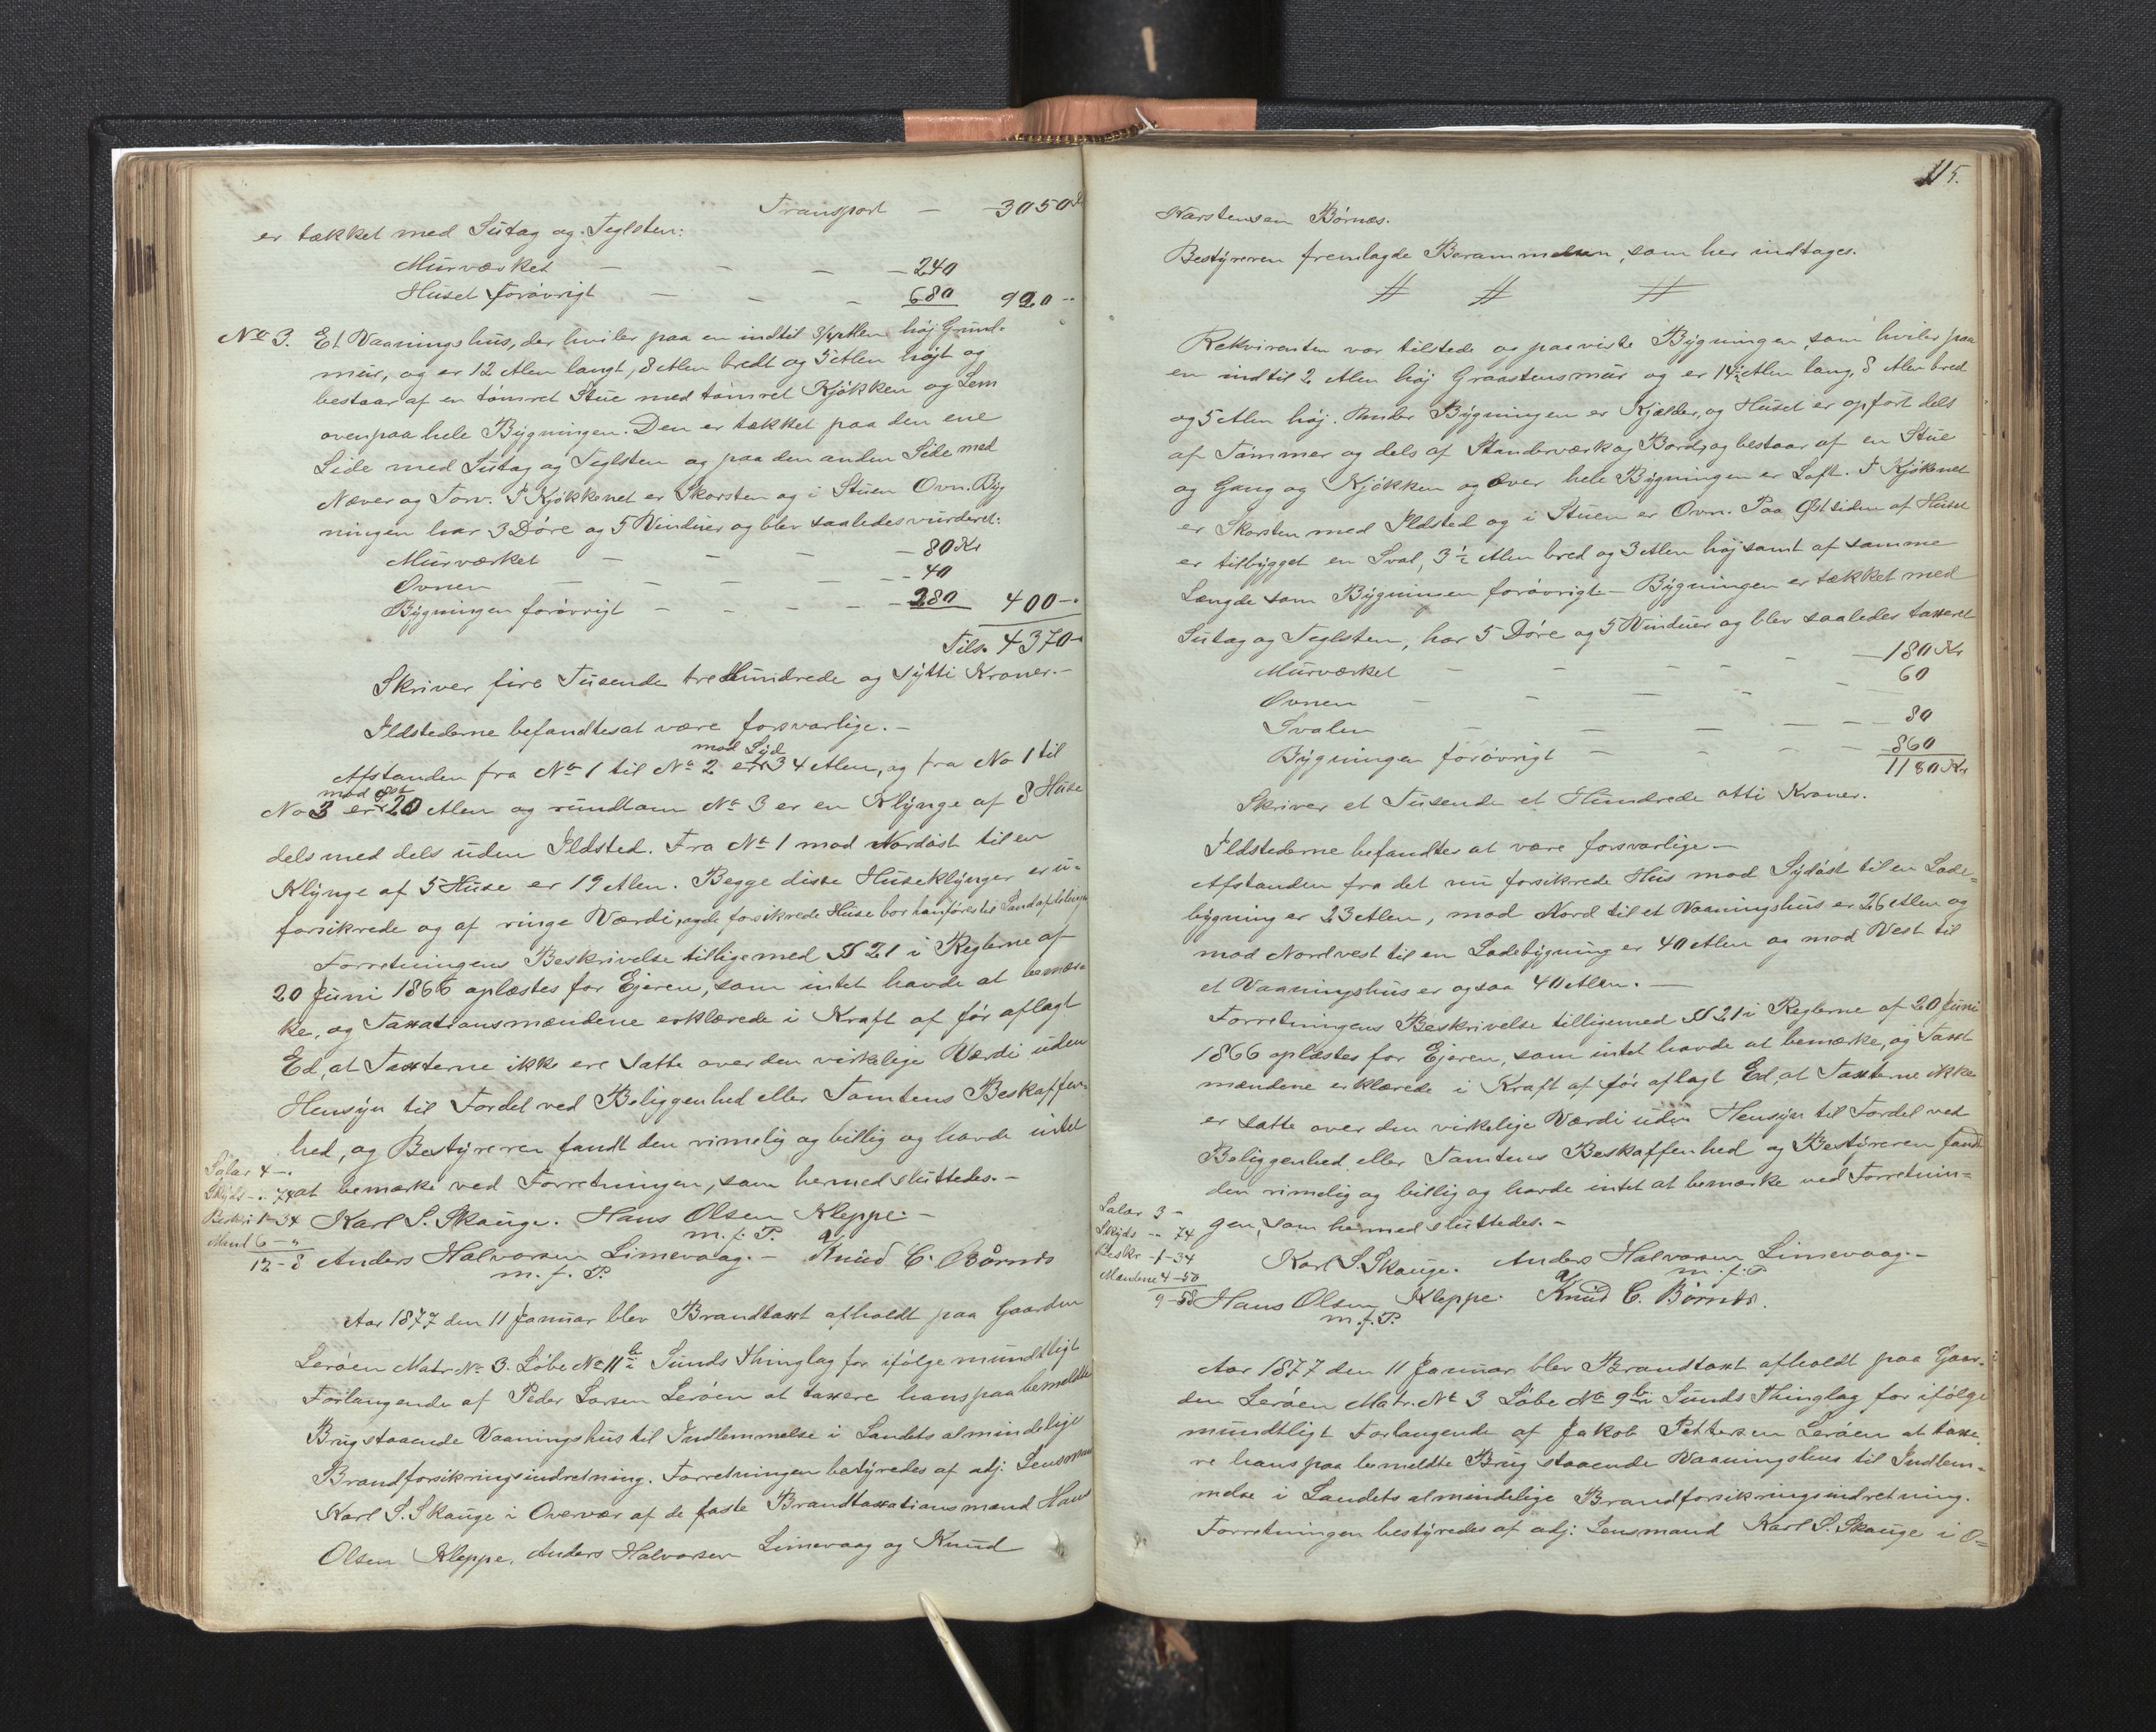 Transport — 3050
er tækket med Sutag og Teglsten:
Murværket — 240
Huset forøvrigt — 680 920 -
No 3. Et Vaaningshus, der hviler paa en indtil 3/4 Alen høj Grund-
mur, og er 12 Alen langt, 8 Alen bredt og 5 Alen højt og
bestaar af en tømret Stue med tømret Kjøkken og Lem
ovenpaa hele Bygningen. Den er tækket paa den ene
Side med Sutag og Teglsten og paa den anden Side med
Næver og Torv. I Kjøkkenet er Skorsten og i Stuen Ovn. Byg
ningen har 3 Døre og 5 Vinduer og blev saaledes vurderet:
Murværket — 80 Kr
Ovnen — 40
Bygningen forøvrigt — 280 400 -
Tils. 4370 -
Skriver fire Tusende tre Hundrede og sytti Kroner. -
Ildstederne befandtes at være forsvarlige. -
Afstanden fra No 1 til No 2 mod Syd er 34 Alen, og fra No 1 til
No 3 mod Øst er 20 Alen og rundtom No 3 er en Klynge af 8 Huse
dels med dels uden Ildsted. Fra No 1 mod Nordøst til en
Klynge af 5 Huse er 19 Alen. Begge disse Huseklynger er u-
forsikrede og af ringe Værdi, og de forsikrede Huse bør henføres til Landafdelingen
Forretningens Beskrivelse tilligemed § 21 i Reglerne af
20 Juni 1866 oplæstes for Ejeren, som intet havde at bemær-
ke, og Taxationsmændene erklærede i Kraft af før aflagt
Ed, at Taxterne ikke ere satte over den virkelige Værdi uden
Hensyn til Fordel ved Beliggenhed eller Tomtens Beskaffen-
hed, og Bestyreren fandt den rimelig og billig og havde intet
at bemærke ved Forretningen, som hermed sluttedes. -
Salær 4 -
Skyds - 74
Beskr. 1 - 34
Mænd 6 - "
12 - 8
Karl S. Skauge. Hans Olsen Kleppe. -
m. f. P.
Anders Halvorsen Limevaag. - Knud C. Børnes
m. f. P.
Aar 1877 den 11 Januar blev Brandtaxt afholdt paa Gaarden
Lerøen Matr. No 3. Løbe No 11 b i Sunds Thinglag for ifølge mundtligt
Forlangende af Peder Larsen Lerøen at taxere hans paa bemeldte
Brug staaende Vaaningshus til Indlemmelse i Landets almindelige
Brandforsikringsindretning. Forretningen bestyredes af adj. Lensmand
Karl S. Skauge i Overvær af de faste Brandtaxationsmænd Hans
Olsen Kleppe, Anders Halvorsen Limevaag og Knud
115.
Karstensen Børnæs.
Bestyreren fremlagde Berammelsen, som her indtages.
# # #
Rekvirenten var tilstede og paaviste Bygningen, som hviler paa
en indtil 2 Alen høj Graastensmur og er 14 1/2 Alen lang, 8 Alen bred
og 5 Alen høj. Under Bygningen er Kjælder, og Huset er opført dels
af Tømmer og dels af Standerværk og Bord, og bestaar af en Stue
og Gang og Kjøkken og Over hele Bygningen er Loft. I Kjøkenet
er Skorsten med Ildsted og i Stuen er Ovn. Paa Østsiden af Huset
er tilbygget en Sval, 3 1/2 Alen bred og 3 Alen høj samt af samme
Længde som Bygningen forøvrigt - Bygningen er tækket med
Sutag og Teglsten, har 5 Døre og 5 Vinduer og blev saaledes taxeret
Murværket — 180 Kr
Ovnen — 60
Svalen — 80
Bygningen forøvrigt — 860
1180 Kr
Skriver et Tusende et Hundrede otti Kroner.
Ildstederne befandtes at være forsvarlige. -
Afstanden fra det nu forsikrede Hus mod Sydøst til en Lade-
bygning er 23 Alen, mod Nord til et Vaaningshus er 26 Alen og
mod Nordvest til en Ladebygning er 40 Alen og mod Vest til
et Vaaningshus er ogsaa 40 Alen. -
Forretningens Beskrivelse tilligemed § 21 i Reglerne af 20 Juni
1866 oplæstes for Ejeren, som intet havde at bemærke, og Taxt
mændene erklærede i Kraft af før aflagt Ed, at Taxterne ikke
er satte over den virkelige Værdi uden Hensyn til Fordel ved
Beliggenhed eller Tomtens Beskaffenhed og Bestyreren fandt
den rimelig og billig og havde intet at bemærke ved Forretnin-
gen, som hermed sluttedes. -
Salær 3 -
Skyds - 74
Beskr - 1 - 34
Mændene 4 - 50
9 - 58
Karl S. Skauge. Anders Halvorsen Limevaag. -
m. f. P
Hans Olsen Kleppe. Knud C. Børnes.
m. f. P.
Aar 1877 den 11 Januar blev Brandtaxt afholdt paa Gaar-
den Lerøen Matr. No 3 Løbe No 9 b i Sunds Thinglag for ifølge
mundtligt Forlangende af Jakob Pettersen Lerøen at taxe
re hans paa bemeldte Brug staaende Vaaningshus til Indlem-
melse i Landets almindelige Brandforsikringsindretning.
Forretningen bestyredes af adj: Lensmand Karl S. Skauge i O=